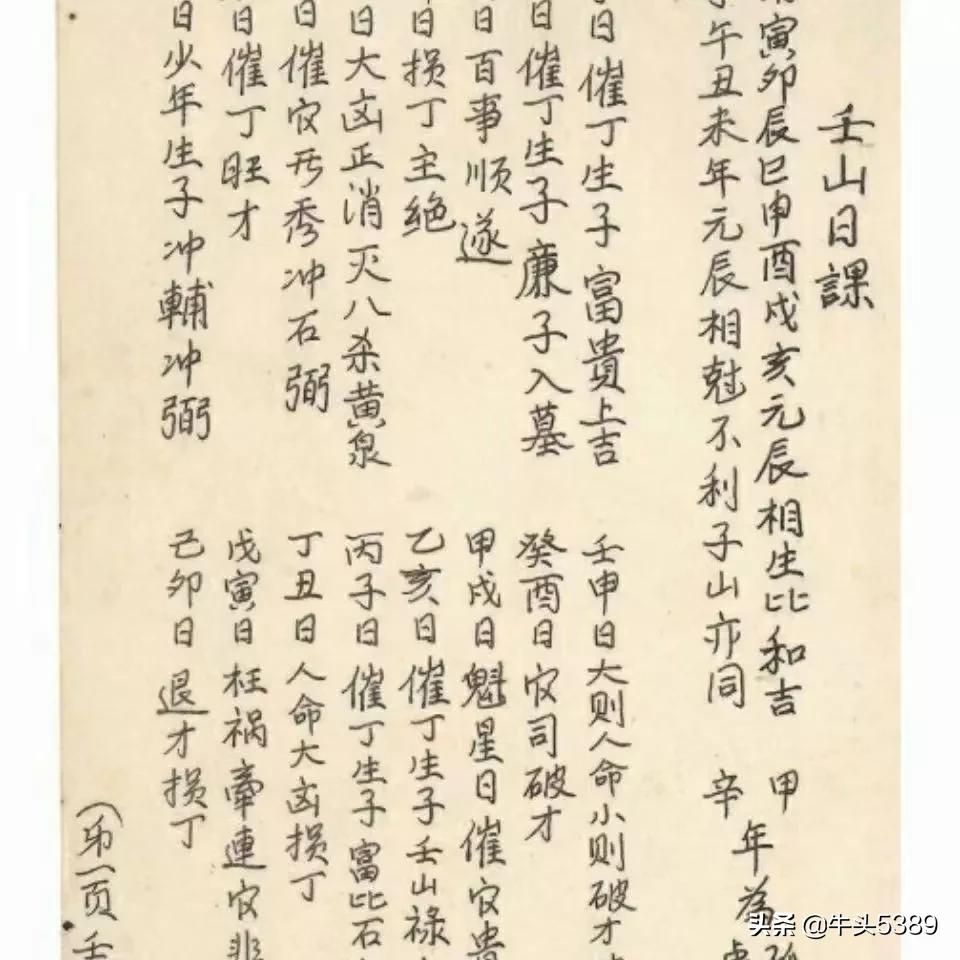 壬山日課
寅卯辰巳申酉戌亥元辰相生比和吉
午丑未年元辰相尅不利子山亦同
甲
辛
年為
日催丁生子富貴上吉
日催丁生子廉子入墓
日百事順遂
日损丁主絶
日大凶正消灭八杀黄泉
日催官历秀冲石弼
日催丁旺才
日少年生子冲輔冲弼
壬申日大则人命小则破才
癸酉日官司破才
甲戌日魁星日催官貴
乙亥日催丁生子壬山禄
丙子日催丁生子富比石
丁丑日人命大凶损丁
戊寅日枉祸牽連官非
己卯日退才损丁
(弟一页壬
头条 @牛头5389